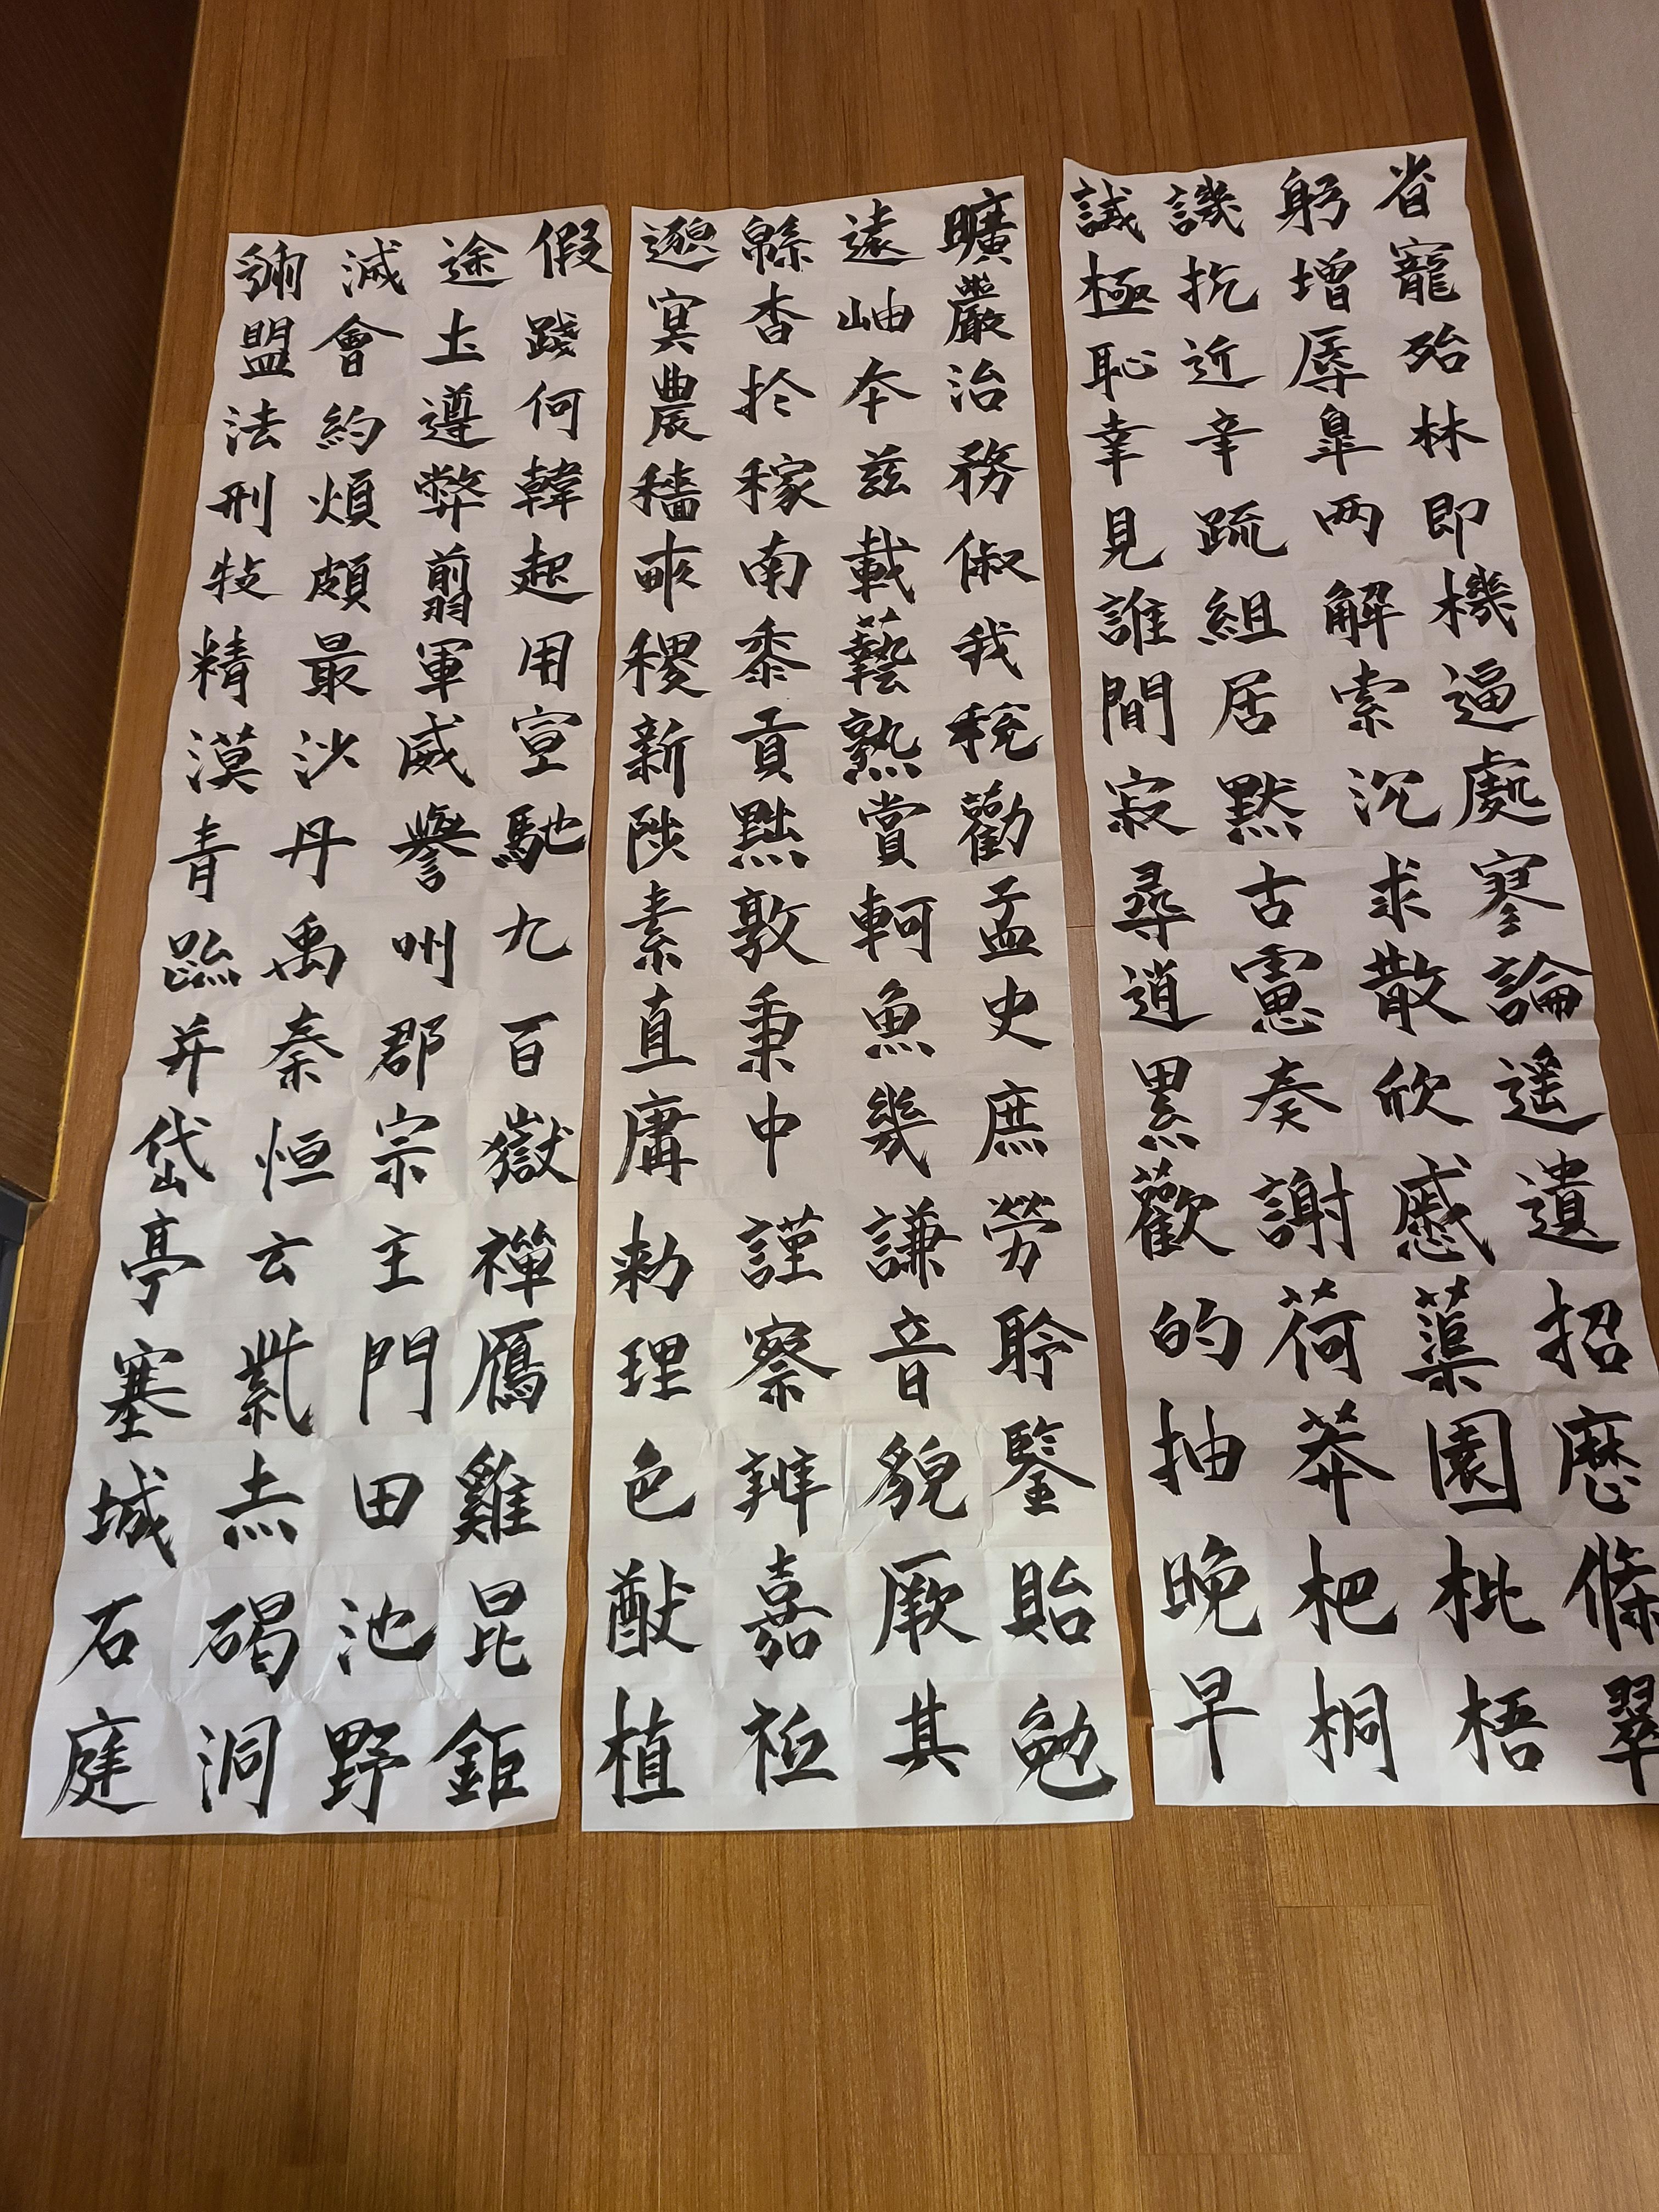 假途滅虢
踐土會盟
何遵約法
韓弊煩刑
起翦頗牧
用軍最精
宣威沙漠
馳譽丹青
九州禹跡
百郡秦并
嶽宗恒岱
禪主云亭
鴈門紫塞
雞田赤城
昆池碣石
鉅野洞庭
曠遠緜邈
巖岫杳冥
治本於農
務茲稼穡
俶載南畝
我藝黍稷
稅熟貢新
勸賞黜陟
孟軻敦素
史魚秉直
庶幾中庸
勞謙謹勅
聆音察理
鑒貌辨色
貽厥嘉猷
勉其祗植
省躬譏誡
寵增抗極
殆辱近恥
林皐辛幸
即两疏見
機解組誰
逼索居間
處沉默寂
寥求古尋
論散慮逍
遙欣奏累
遣慼謝歡
招蕖荷的
歷園莽抽
條枇杷晚
翠梧桐早